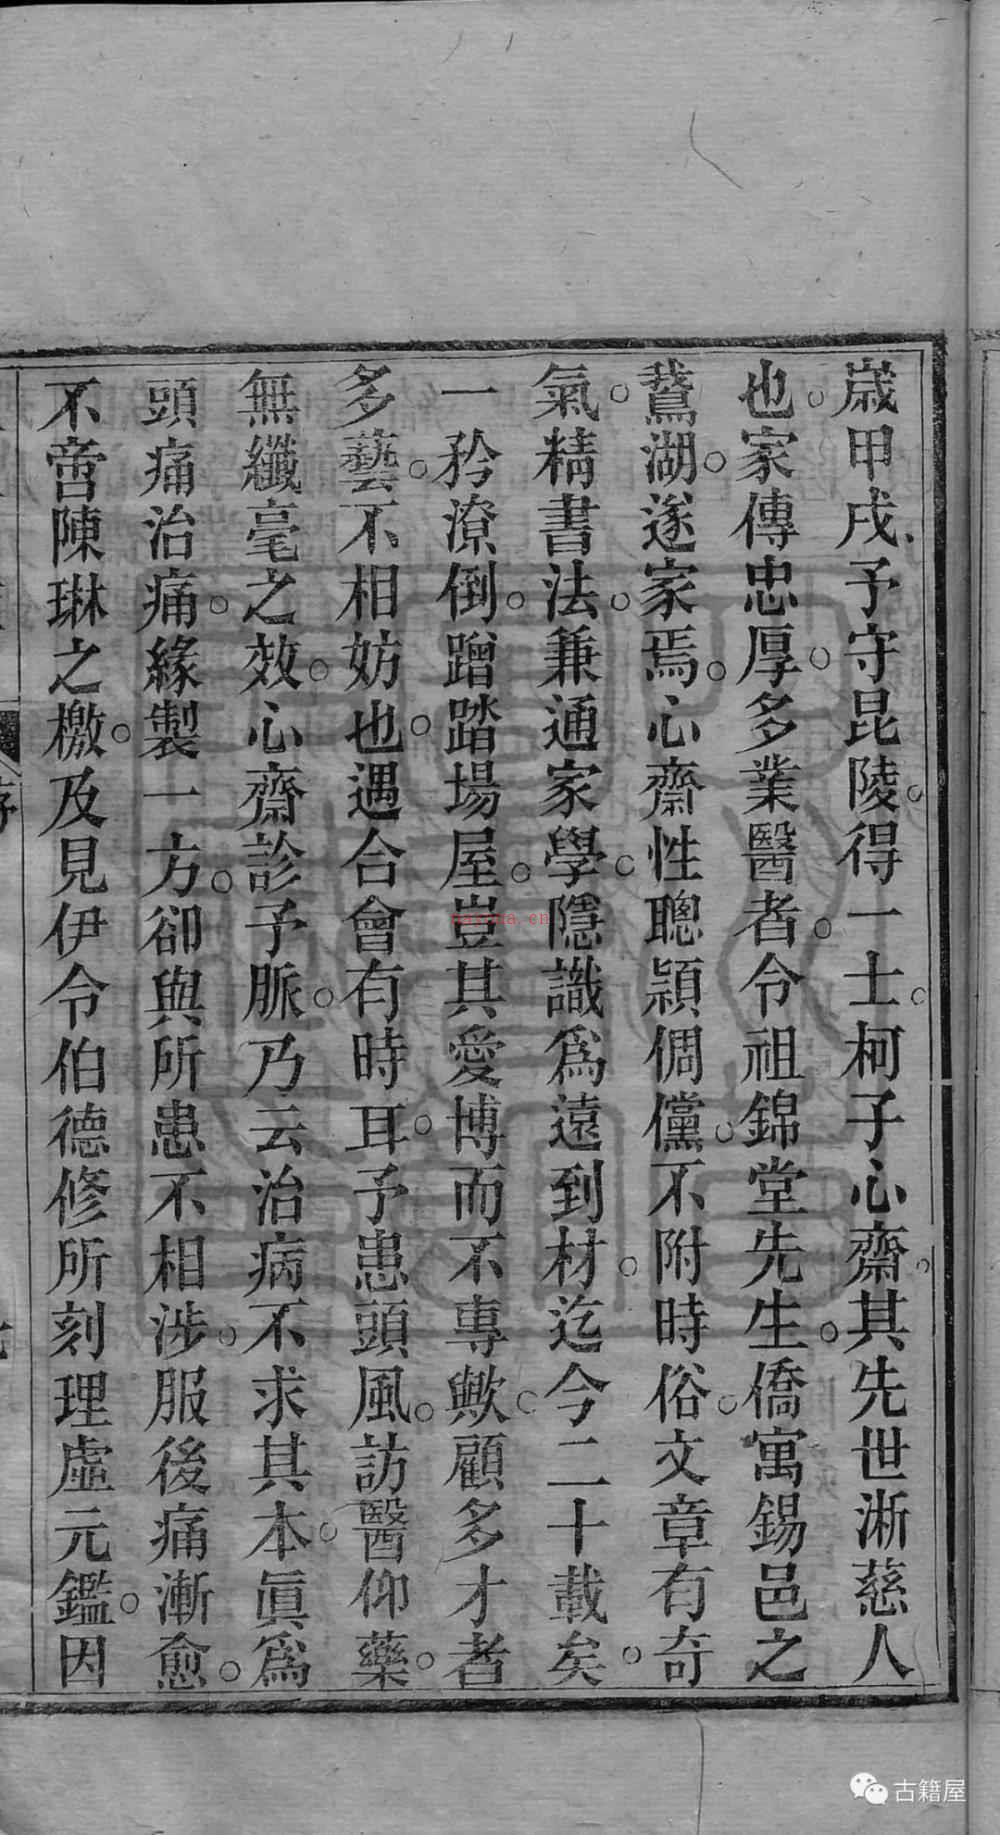 歲甲戌予守昆陵得一士柯子心齋其先世淅慈人
也家傳忠厚多業醫者令祖錦堂先生僑寓錫邑之
鵞湖遂家焉心齋性聰穎倜儻不附時俗文章有奇
氣精書法兼通家學隱識爲遠到材迄今二十載矣
一矜潦倒蹭踏場屋豈其愛博而不專歟顧多才者
多藝不相妨也遇合會有時耳予患頭風訪醫仰藥
無纖毫之效心齋診予脈乃云治病不求其本眞爲
頭痛治痛緣製一方卻與所患不相涉服後痛漸愈
不啻陳琳之檄及見伊令伯德修所刻理虛元鑑因
naxona.cn
古籍屋